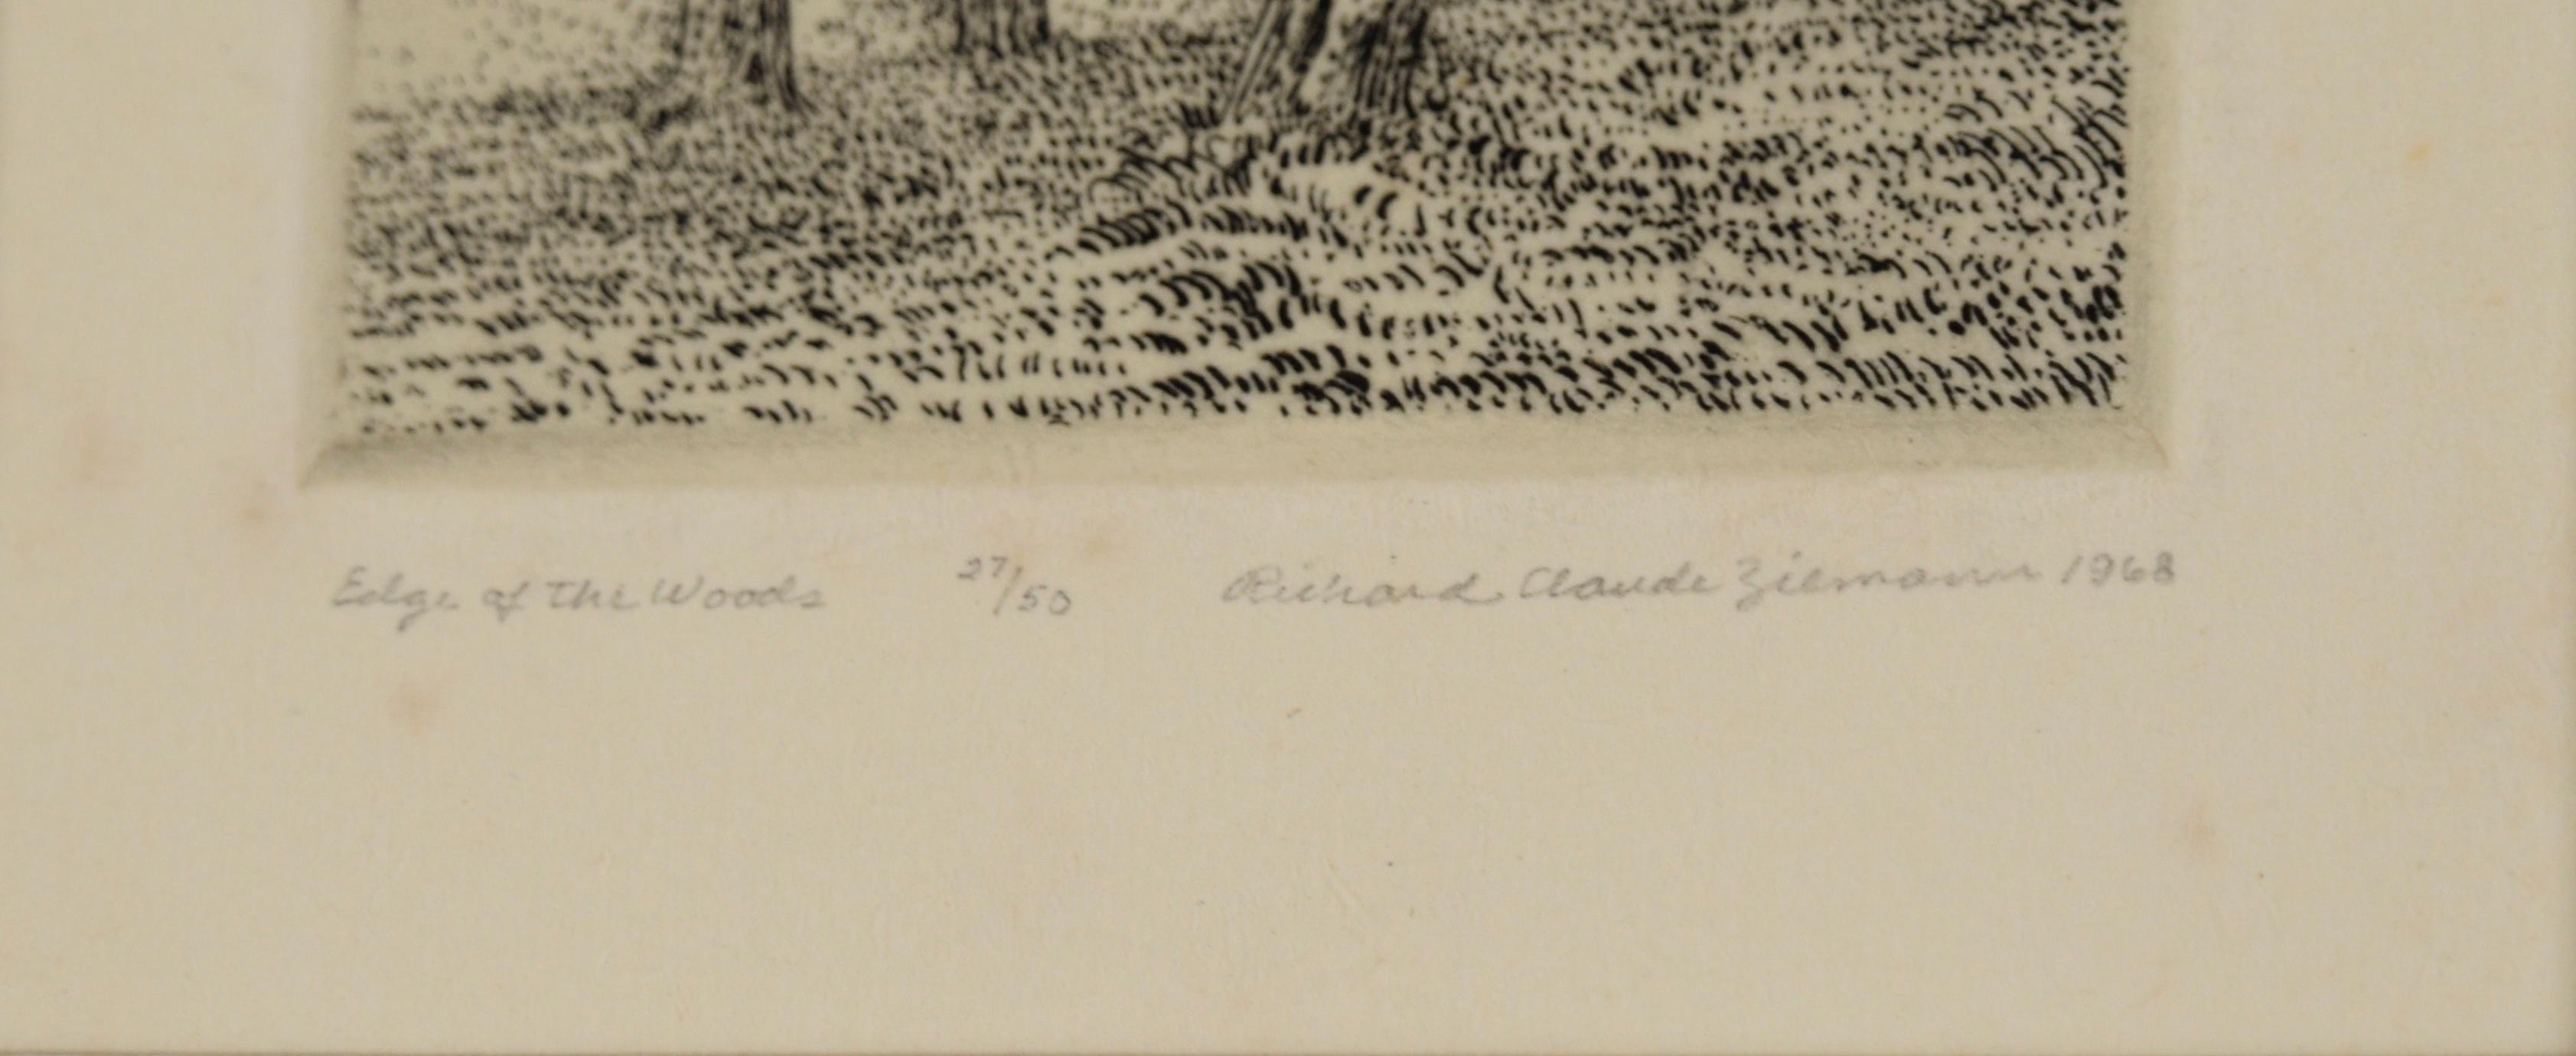 Edge of the Woods 27/50 Richard Claude Ziemann 1968